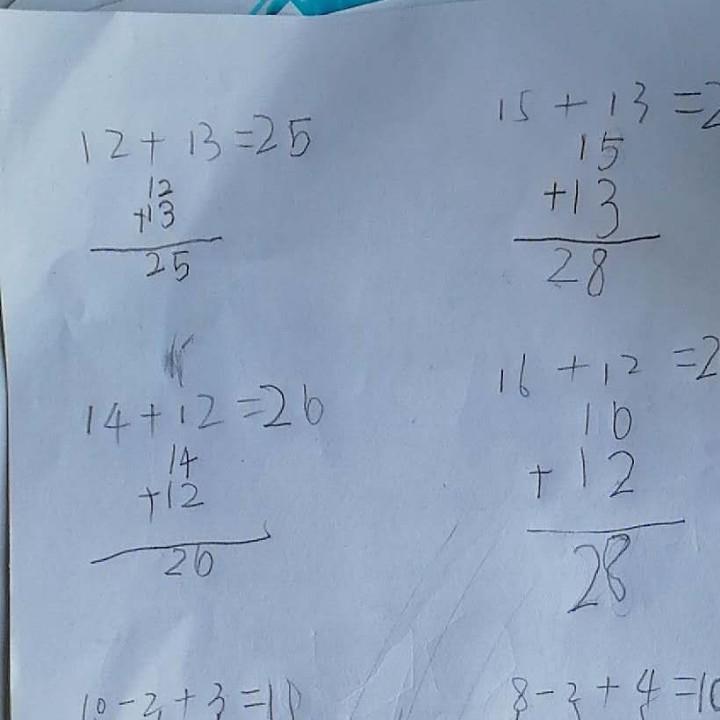 12+13=25
12
+13
25
15+13=2
15
+13
28
14+12=26
14
+12
26
16+12=2
16
+12
28
10-2+3=11
8-2+4=10